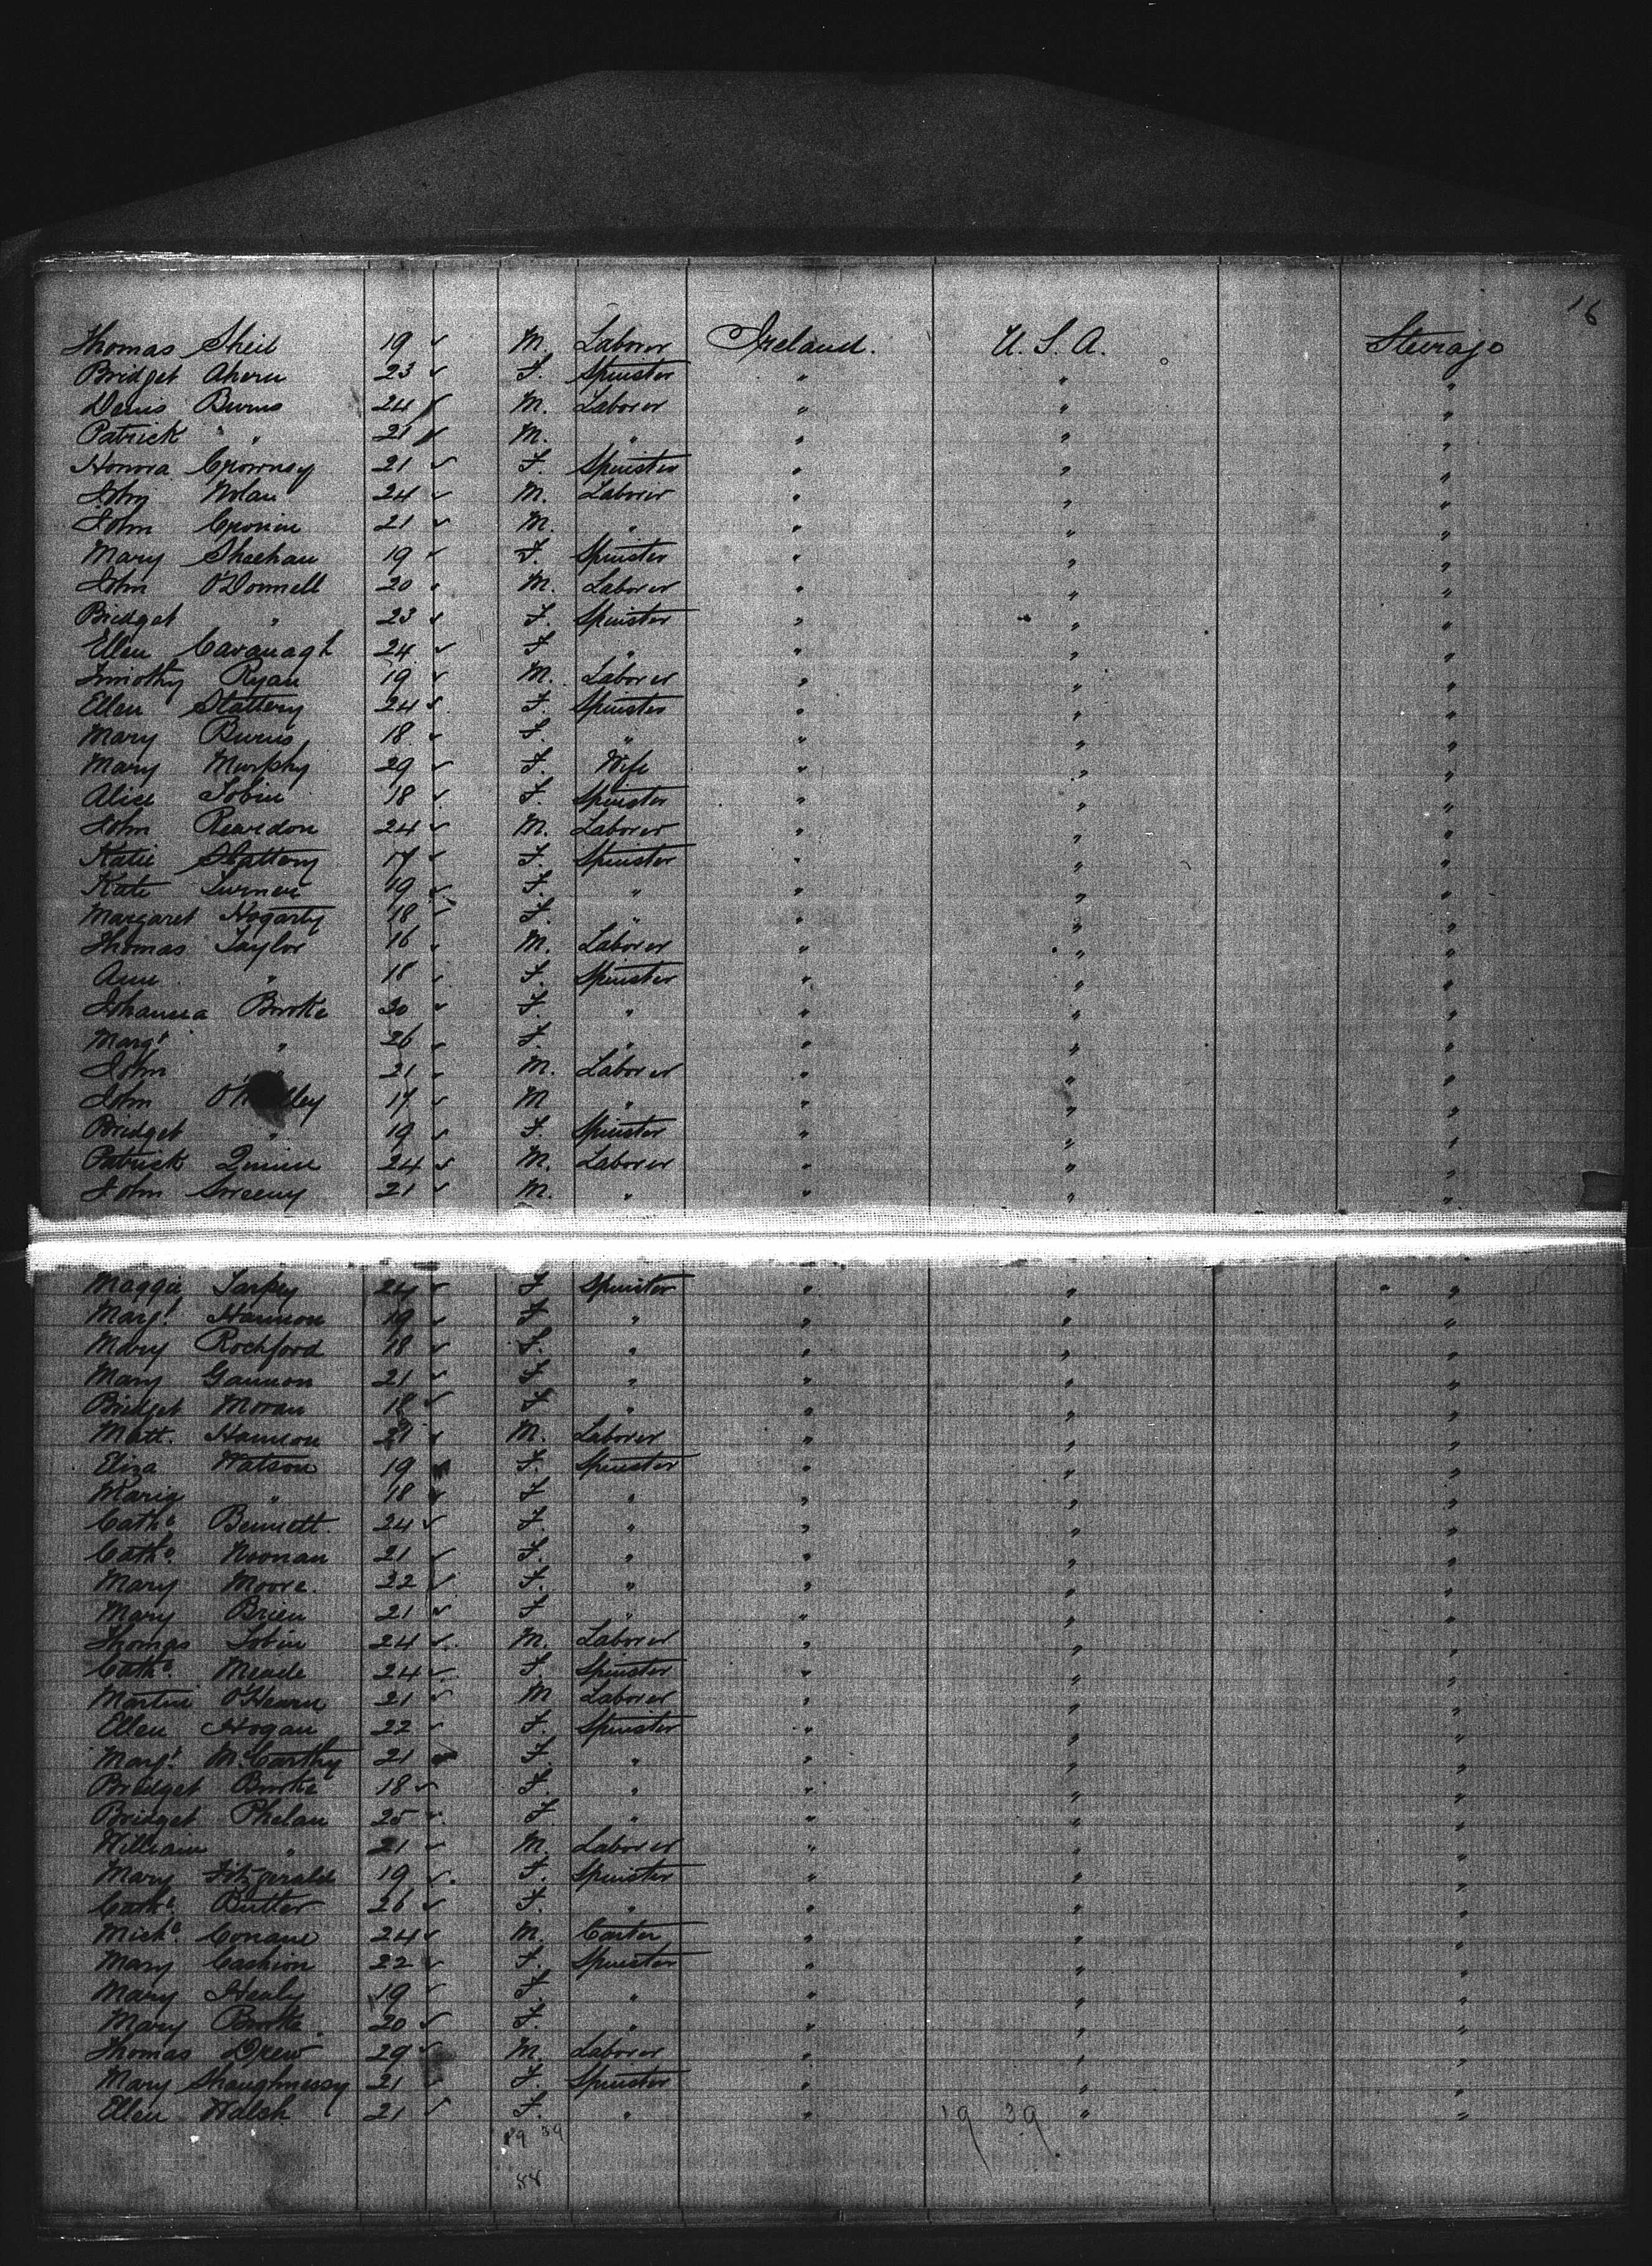 16
Thomas Sheil 19 M. Laborer Ireland. U.S.A. Steerage
Bridget Ahern 23 F. Spinster " " "
Denis Burns 24 M. Laborer " " "
Patrick " 21 M. " " " "
Honora Crowney 21 F. Spinster " " "
John Nolan 24 M. Laborer " " "
John Cronin 21 M. " " " "
Mary Sheehan 19 F. Spinster " " "
John O'Donnell 20 M. Laborer " " "
Bridget " 23 F. Spinster " " "
Ellen Cavanagh 24 F " " " "
Timothy Ryan 19 M. Laborer " " "
Ellen Slattery 24 F. Spinster " " "
Mary Burns 18 F. " " " "
Mary Murphy 29 F. Wife " " "
Alice Tobin 18 F. Spinster " " "
John Reardon 24 M. Laborer " " "
Katie Slattery 17 F. Spinster " " "
Kate Turner 19 F. " " " "
Margaret Hogarty 18 F. " " " "
Thomas Taylor 16 M. Laborer " " "
Ann " 18 F. Spinster " " "
Johanna Burke 30 F. " " " "
Margt " 26 F. " " " "
John " 21 M. Laborer " " "
John 17 M " " " "
Bridget " 19 F. Spinster " " "
Patrick Quinn 24 M. Laborer " " "
John Sweeny 21 M. " " " "
Maggie 24 F Spinster " " "
Margt Hannon 19 F " " " "
Mary Rochford 18 F. " " " "
Mary Gannon 21 F " " " "
Bridget Moran 18 F " " " "
Matt. Hannon 21 M. Laborer " " "
Eliza Watson 19 F. Spinster " " "
Maria " 18 F " " " "
Cathe Bennett. 24 F. " " " "
Cathe Noonan 21 F. " " " "
Mary Moore. 22 F. " " " "
Mary Brien 21 F " " " "
Thomas Tobin 24 M. Laborer " " "
Cathe Meade 24 F. Spinster " " "
Martin O'Hearn 21 M Laborer " " "
Ellen Hogan 22 F. Spinster " " "
Margt McCarthy 21 F. " " " "
Bridget Burke 18 F " " " "
Bridget Phelan 25 F. " " " "
William " 21 M. Laborer " " "
Mary Fitzgerald 19 F. Spinster " " "
Cathe Butler 26 F. " " " "
Michl Conane 24 M. Carter " " "
Mary Cashion 22 F. Spinster " " "
Mary Healy 19 F. " " " "
Mary Burke. 20 F. " " " "
Thomas Drew 29 M. Laborer " " "
Mary Shaughnessy 21 F. Spinster " " "
Ellen Walsh 21 F. " " " "
19 39
19 39
88